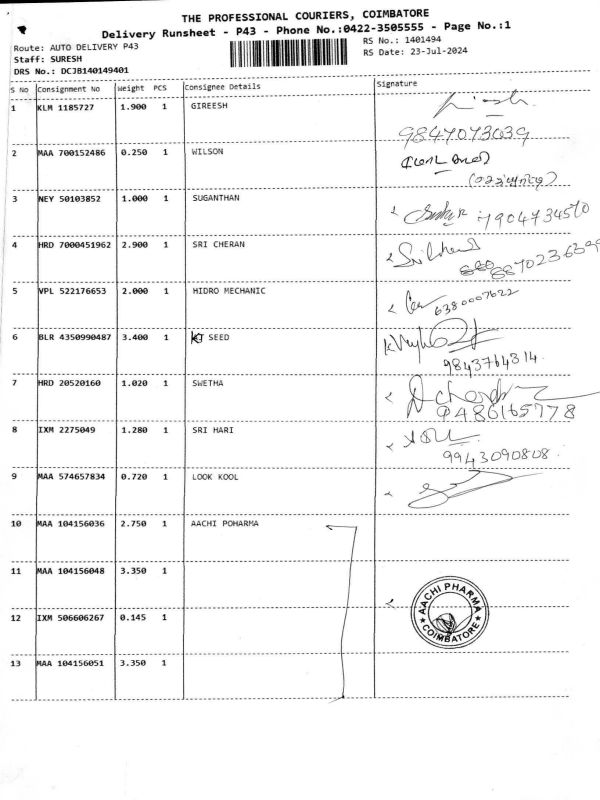 THE PROFESSIONAL COURIERS, COIMBATORE
Delivery Runsheet - P43 - Phone No.:0422-3505555 - Page No.:1
Route: AUTO DELIVERY P43
RS No.: 1401494
Staff: SURESH
RS Date: 23-Jul-2024
DRS No.: DCJB140149401
S No Consignment No Weight PCS Consignee Details Signature
1 KLM 1185727 1.900 1 GIREESH
9847073639
2 MAA 700152486 0.250 1 WILSON
3 NEY 50103852 1.000 1 SUGANTHAN
7904734570
4 HRD 7000451962 2.900 1 SRI CHERAN
8870236399
5 VPL 522176653 2.000 1 HIDRO MECHANIC
6380007622
6 BLR 4350990487 3.400 1 SEED
9843764314
7 HRD 20520160 1.020 1 SWETHA
9486165778
8 IXM 2275049 1.280 1 SRI HARI
9943090808
9 MAA 574657834 0.720 1 LOOK KOOL
10 MAA 104156036 2.750 1 AACHI POHARMA
11 MAA 104156048 3.350 1
AACHI PHARMA
COIMBATORE
12 IXM 506606267 0.145 1
13 MAA 104156051 3.350 1